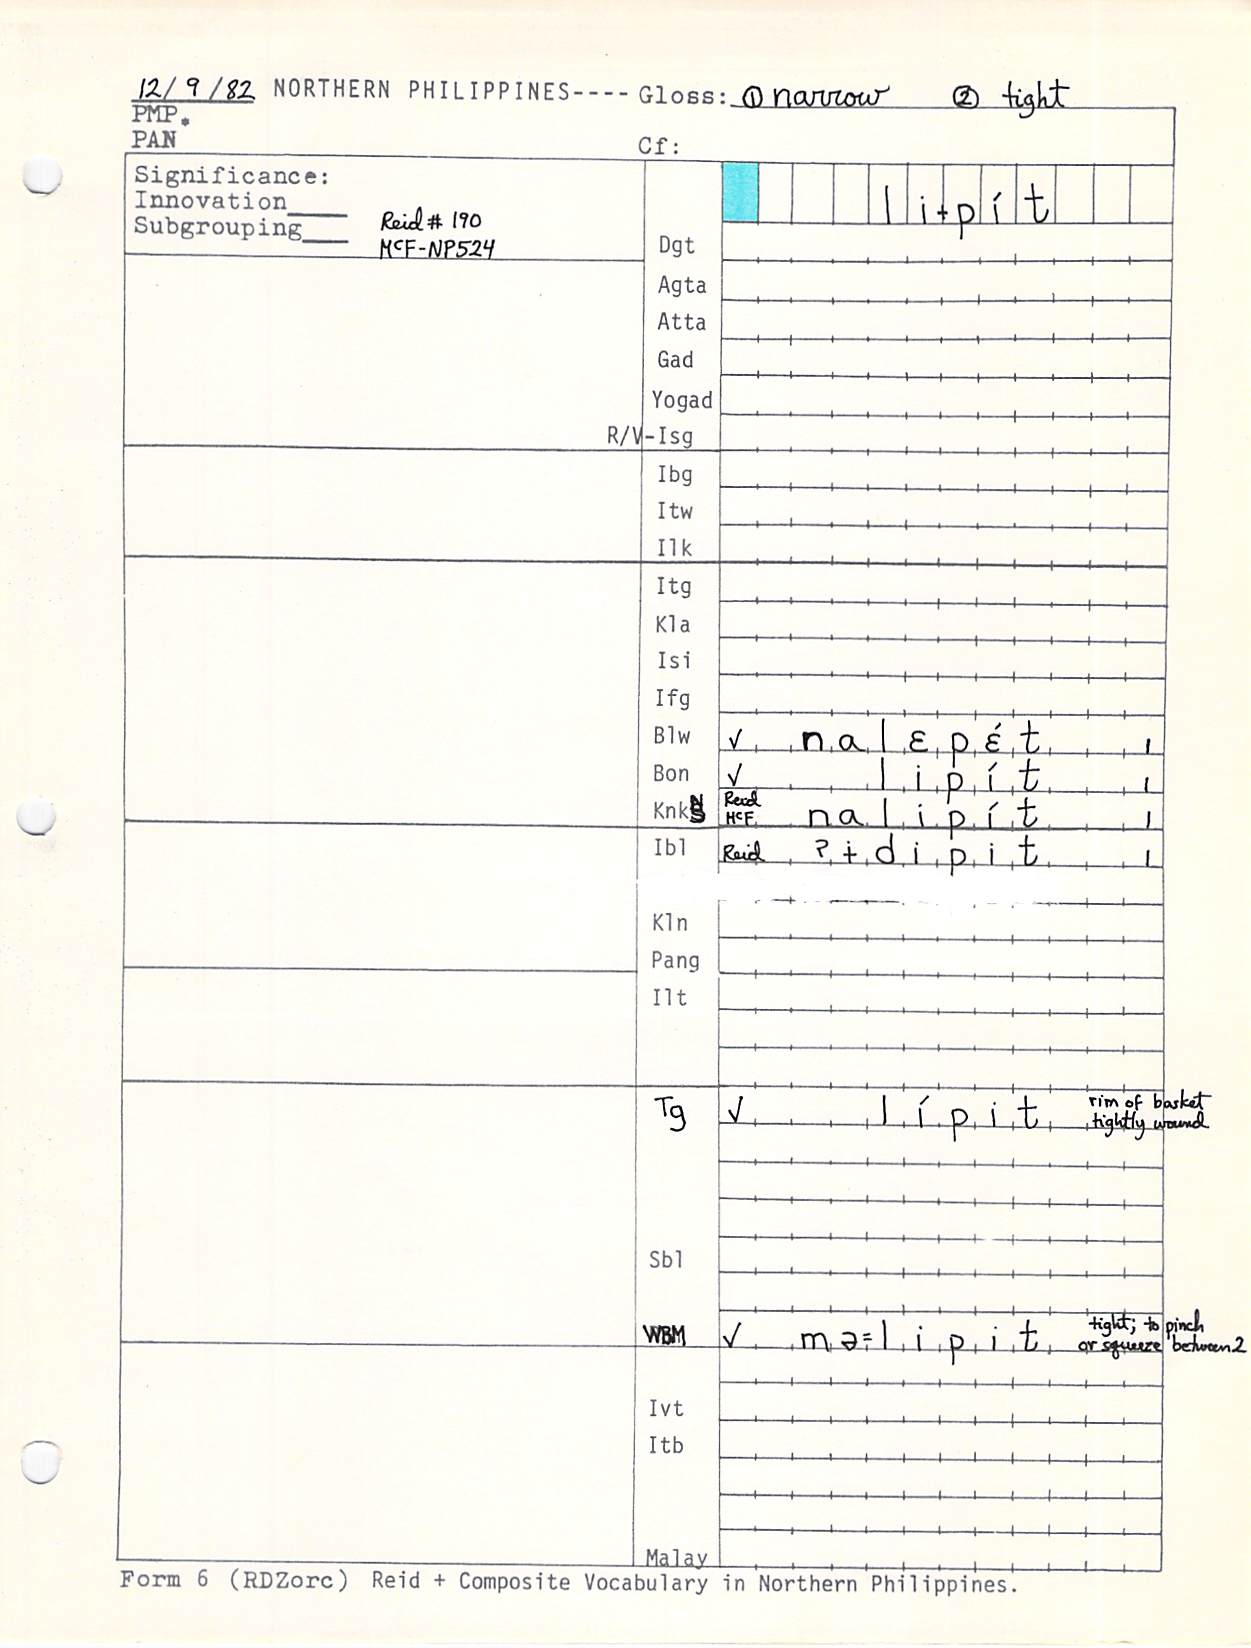 12/9/82 NORTHERN PHILIPPINES---- Gloss: ① narrow ② tight
PMP.
PAN
Cf:
Significance:
Innovation____
Subgrouping___
Reid # 190
McF-NP524
li+pít
Dgt
Agta
Atta
Gad
Yogad
R/V-Isg
Ibg
Itw
Ilk
Itg
Kla
Isi
Ifg
Blw ✓ nalɛpɛ́t 1
Bon ✓ lipít 1
KnkN Reid McF nalipít 1
Ibl Reid ʔɨdipit 1
Kln
Pang
Ilt
Tg ✓ lípit rim of basket
tightly wound
Sbl
WBM ✓ mə=lipit tight; to pinch
or squeeze between 2
Ivt
Itb
Malay
Form 6 (RDZorc) Reid + Composite Vocabulary in Northern Philippines.